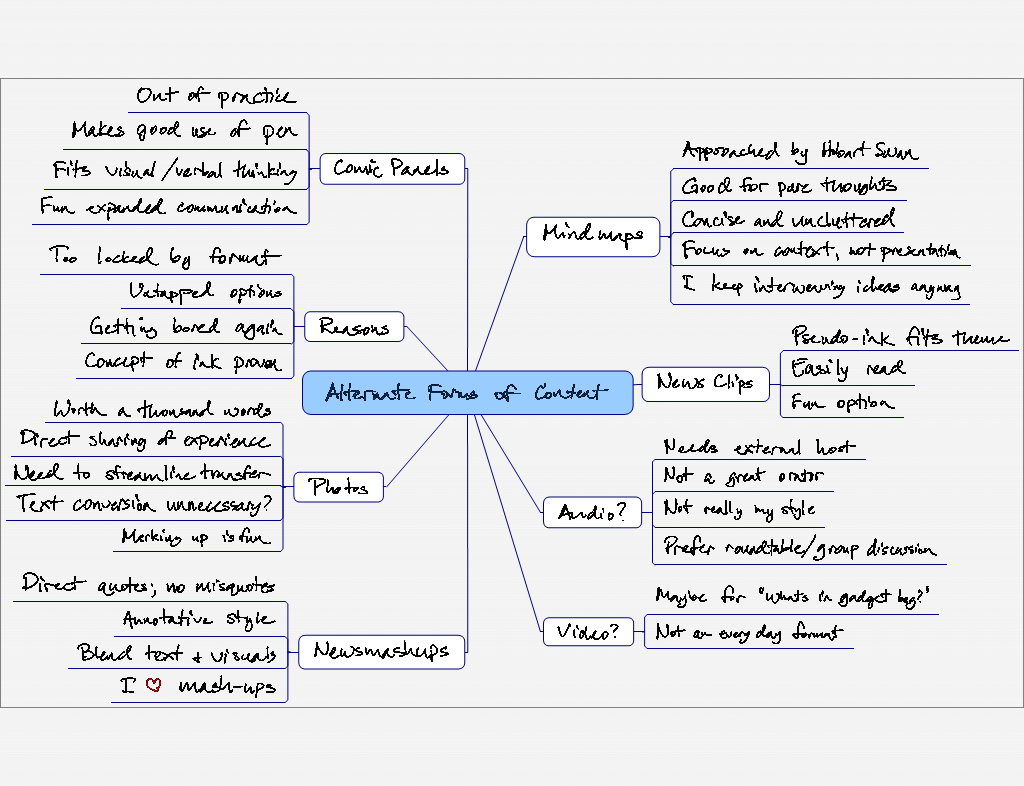 Out of practice
Makes good use of pen
Fits visual/verbal thinking
Fun expanded communication
Comic Panels
Too locked by format
Untapped options
Getting bored again
Concept of ink proven
Reasons
Alternate Forms of Content
Worth a thousand words
Direct sharing of experience
Need to streamline transfer
Text conversion unnecessary?
Marking up is fun
Photos
Direct quotes; no misquotes
Annotative style
Blend text + visuals
I ♥ mash-ups
Newsmashups
Mind maps
Approached by Hobart Swan
Good for pure thoughts
Concise and uncluttered
Focus on context, not presentation
I keep interweaving ideas anyway
News Clips
Pseudo-ink fits theme
Easily read
Fun option
Audio?
Needs external host
Not a great orator
Not really my style
Prefer roundtable/group discussion
Video?
Maybe for "What's in gadget bag?"
Not an every day format